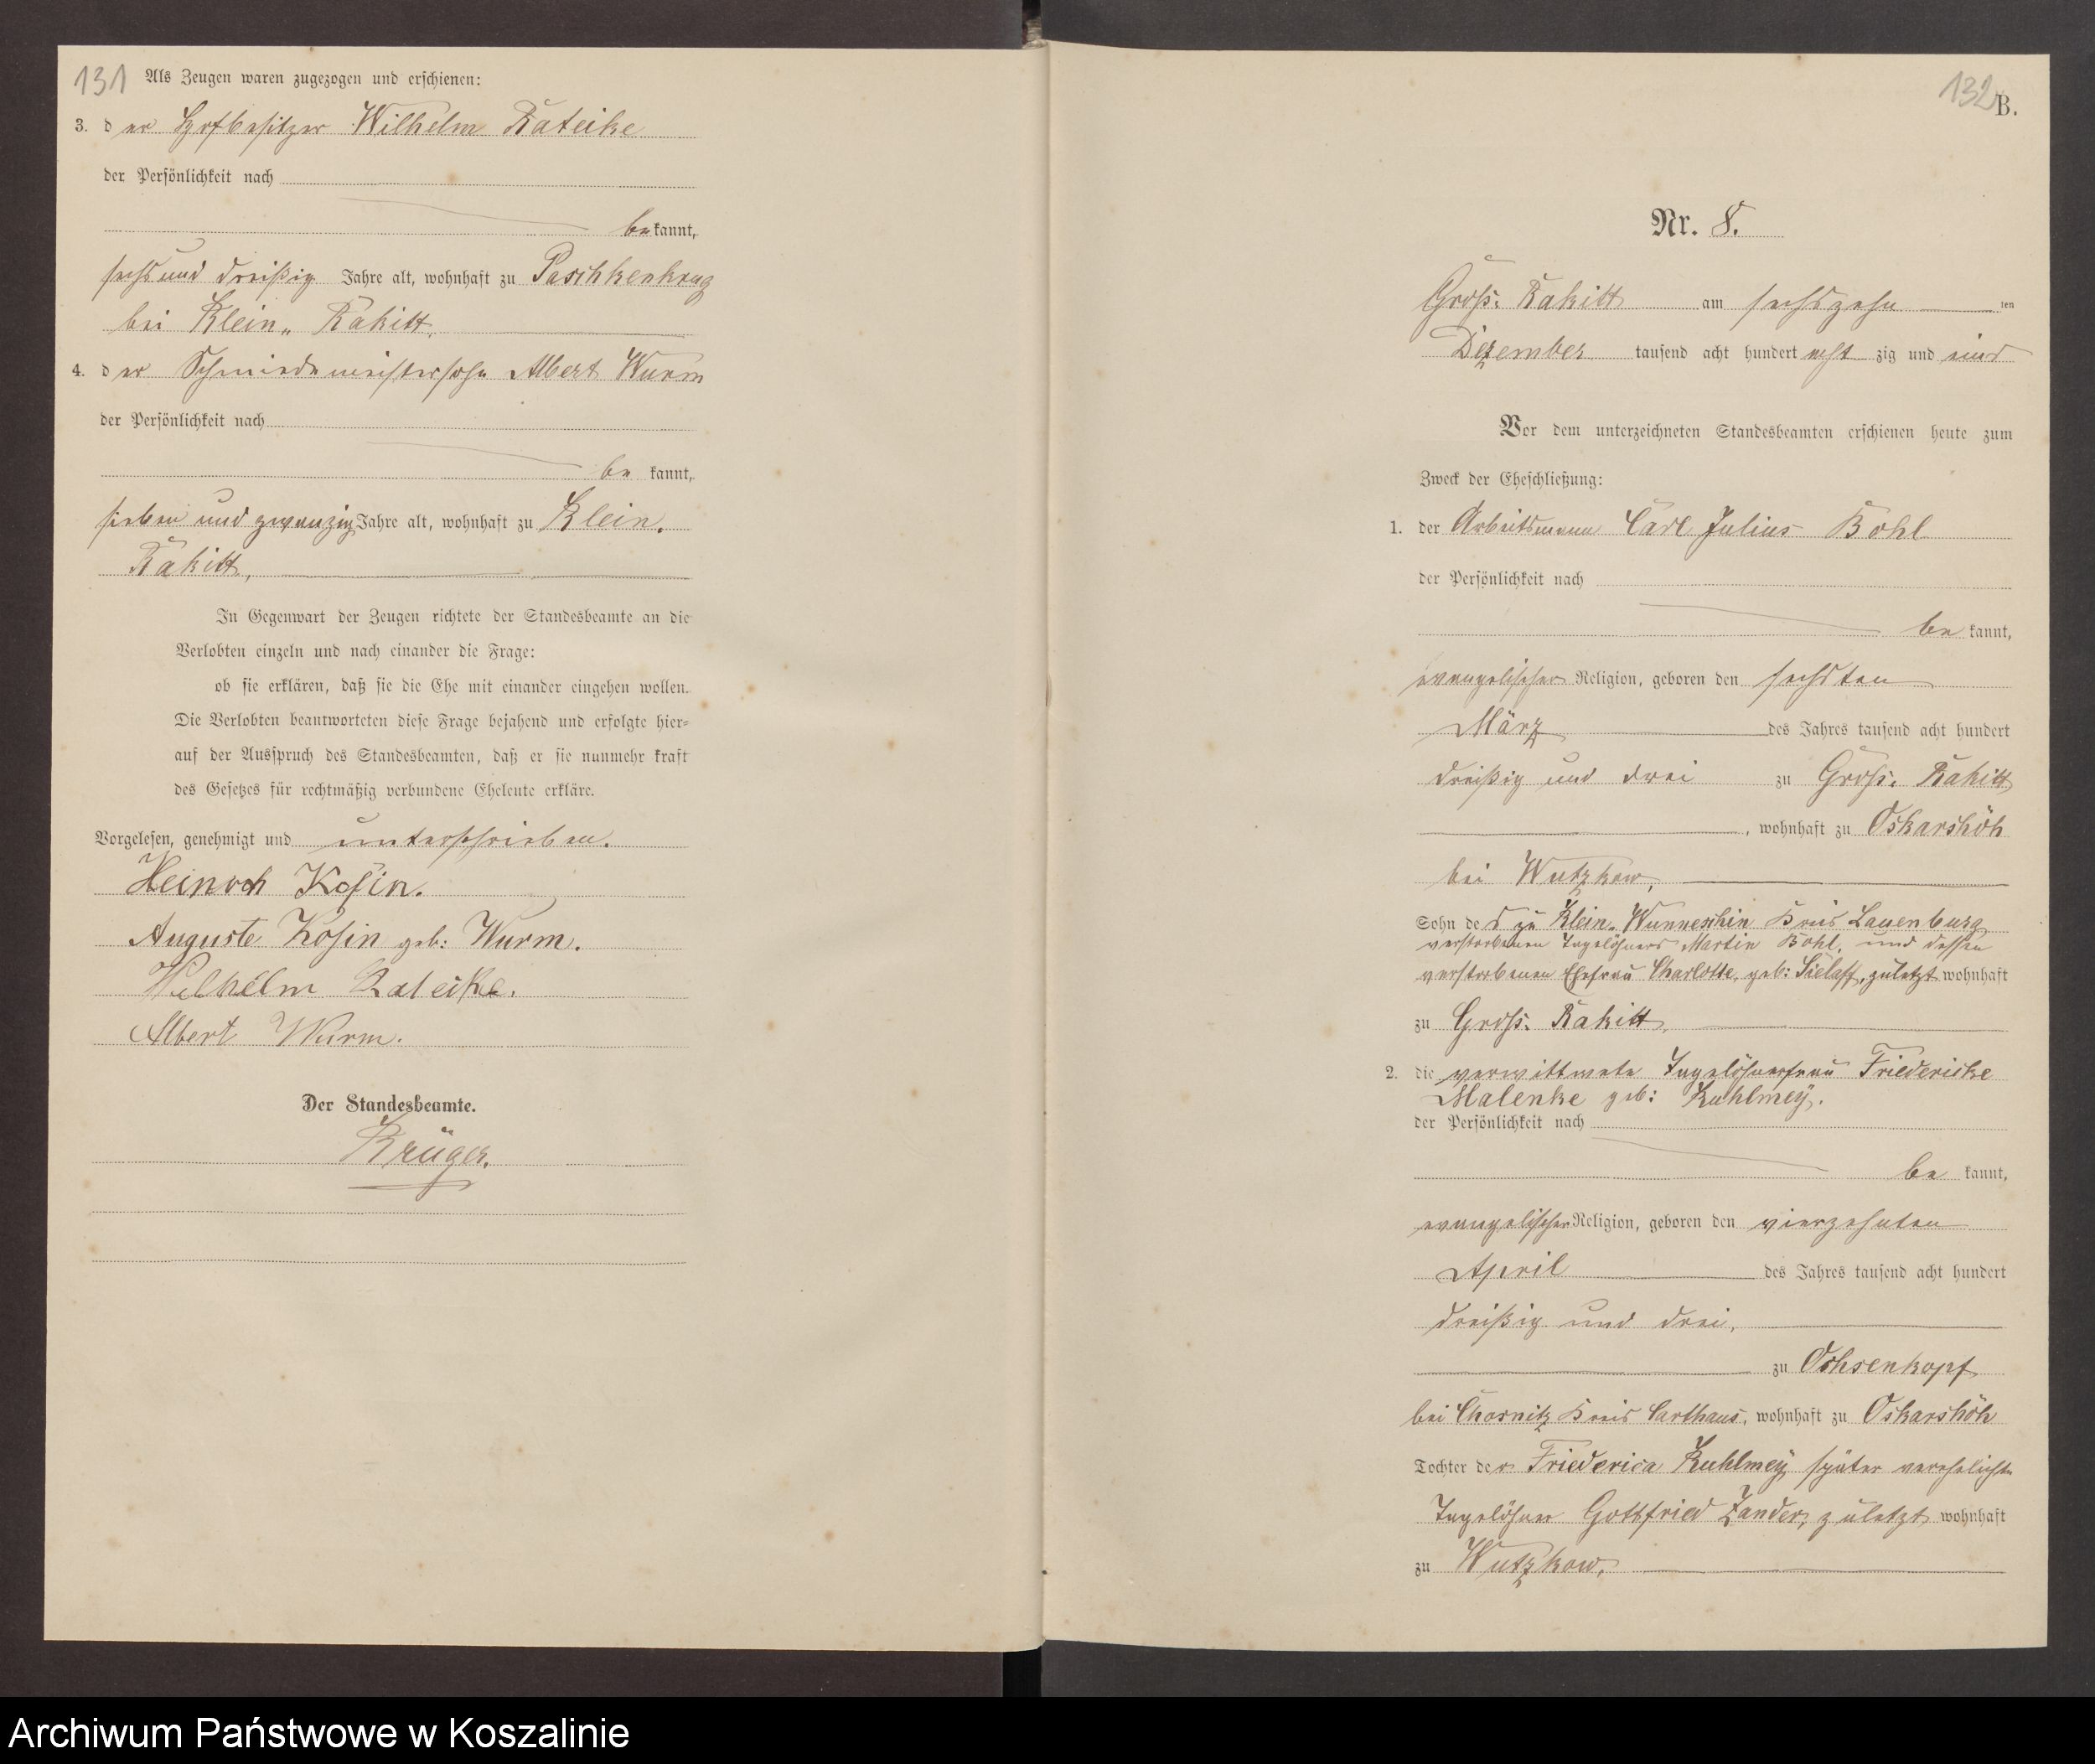 131 Als Zeugen waren zugezogen und erschienen:
3. der Hofbesitzer Wilhelm Rateike
der Persönlichkeit nach
bekannt,
sechs und dreißig Jahre alt, wohnhaft zu Paschkenkrug
bei Klein„ Rakitt,
4. der Schmiedemeistersohn Albert Wurm
der Persönlichkeit nach
be kannt,
sieben und zwanzig Jahre alt, wohnhaft zu Klein„
Rakitt,
In Gegenwart der Zeugen richtete der Standesbeamte an die
Verlobten einzeln und nach einander die Frage:
ob sie erklären, daß sie die Ehe mit einander eingehen wollen.
Die Verlobten beantworteten diese Frage bejahend und erfolgte hier-
auf der Ausspruch des Standesbeamten, daß er sie nunmehr kraft
des Gesetzes für rechtmäßig verbundene Eheleute erkläre.
Vorgelesen, genehmigt und unterschrieben.
Heinrich Kosin.
Auguste Kosin geb: Wurm.
Wilhelm Rateike.
Albert Wurm.
Der Standesbeamte.
Krüger.
132
B.
Nr. 8.
Groß: Rakitt am sechszehn ten
Dezember tausend acht hundert acht zig und eins
Vor dem unterzeichneten Standesbeamten erschienen heute zum
Zweck der Eheschließung:
1. der Arbeitsmann Carl Julius Bohl
der Persönlichkeit nach
be kannt,
evangelischer Religion, geboren den sechsten
März des Jahres tausend acht hundert
dreißig und drei zu Groß: Rakitt
, wohnhaft zu Oskarshöh
bei Wutzkow,
Sohn des zu Klein„ Wunneschin Kreis Lauenburg
verstorbenen Tagelöhners Martin Bohl, und dessen
verstorbenen Ehefrau Charlotte, geb: Sielaff, zuletzt wohnhaft
zu Groß: Rakitt,
2. die verwittwete Tagelöhnerfrau Friedericke
Malenke geb: Kuhlmey.
der Persönlichkeit nach
be kannt,
evangelischer Religion, geboren den vierzehnten
April des Jahres tausend acht hundert
dreißig und drei,
zu Ochsenkopf
bei Chosnitz Kreis Carthaus, wohnhaft zu Oskarshöh
Tochter der Friederica Kuhlmey, später verehelichte
Tagelöhner Gottfried Zander, zuletzt wohnhaft
zu Wutzkow,
Archiwum Państwowe w Koszalinie